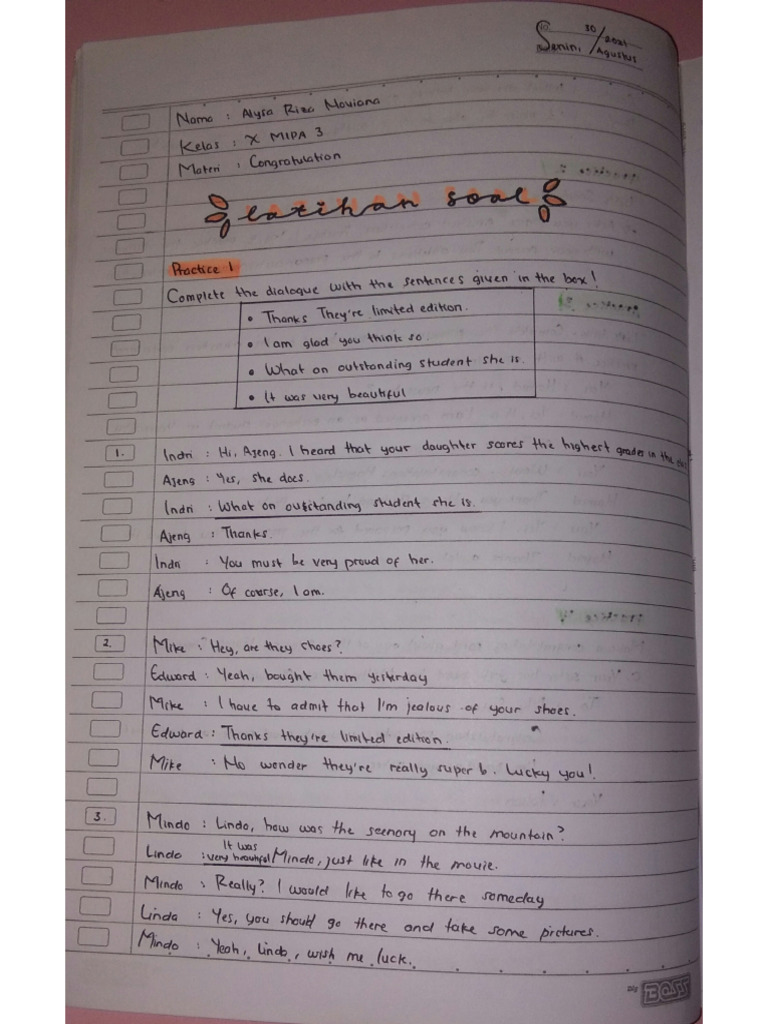 Senin, 30/2021 Agustus
Nama : Alysa Riza Maviana
Kelas : X MIPA 3
Materi : Congratulation
Latihan soal
Practice 1
Complete the dialogue with the sentences given in the box!
• Thanks They're limited edition.
• I am glad you think so.
• What an outstanding student she is.
• It was very beautiful
1. Indri : Hi, Ajeng. I heard that your daughter scores the highest grades in the
Ajeng : Yes, she does.
Indri : What an outstanding student she is.
Ajeng : Thanks.
Indri : You must be very proud of her.
Ajeng : Of course, I am.
2. Mike : Hey, are they shoes?
Edward : Yeah, bought them yesterday
Mike : I have to admit that I'm jealous of your shoes.
Edward : Thanks they're limited edition.
Mike : No wonder they're really super b. Lucky you!
3. Mindo : Lindo, how was the seenory on the mountain?
Lindo : It was very beautiful Mindo, just like in the movie.
Mindo : Really? I would like to go there someday
Linda : Yes, you should go there and take some pictures.
Mindo : Yeah, Lindo, wish me luck.
BOSS